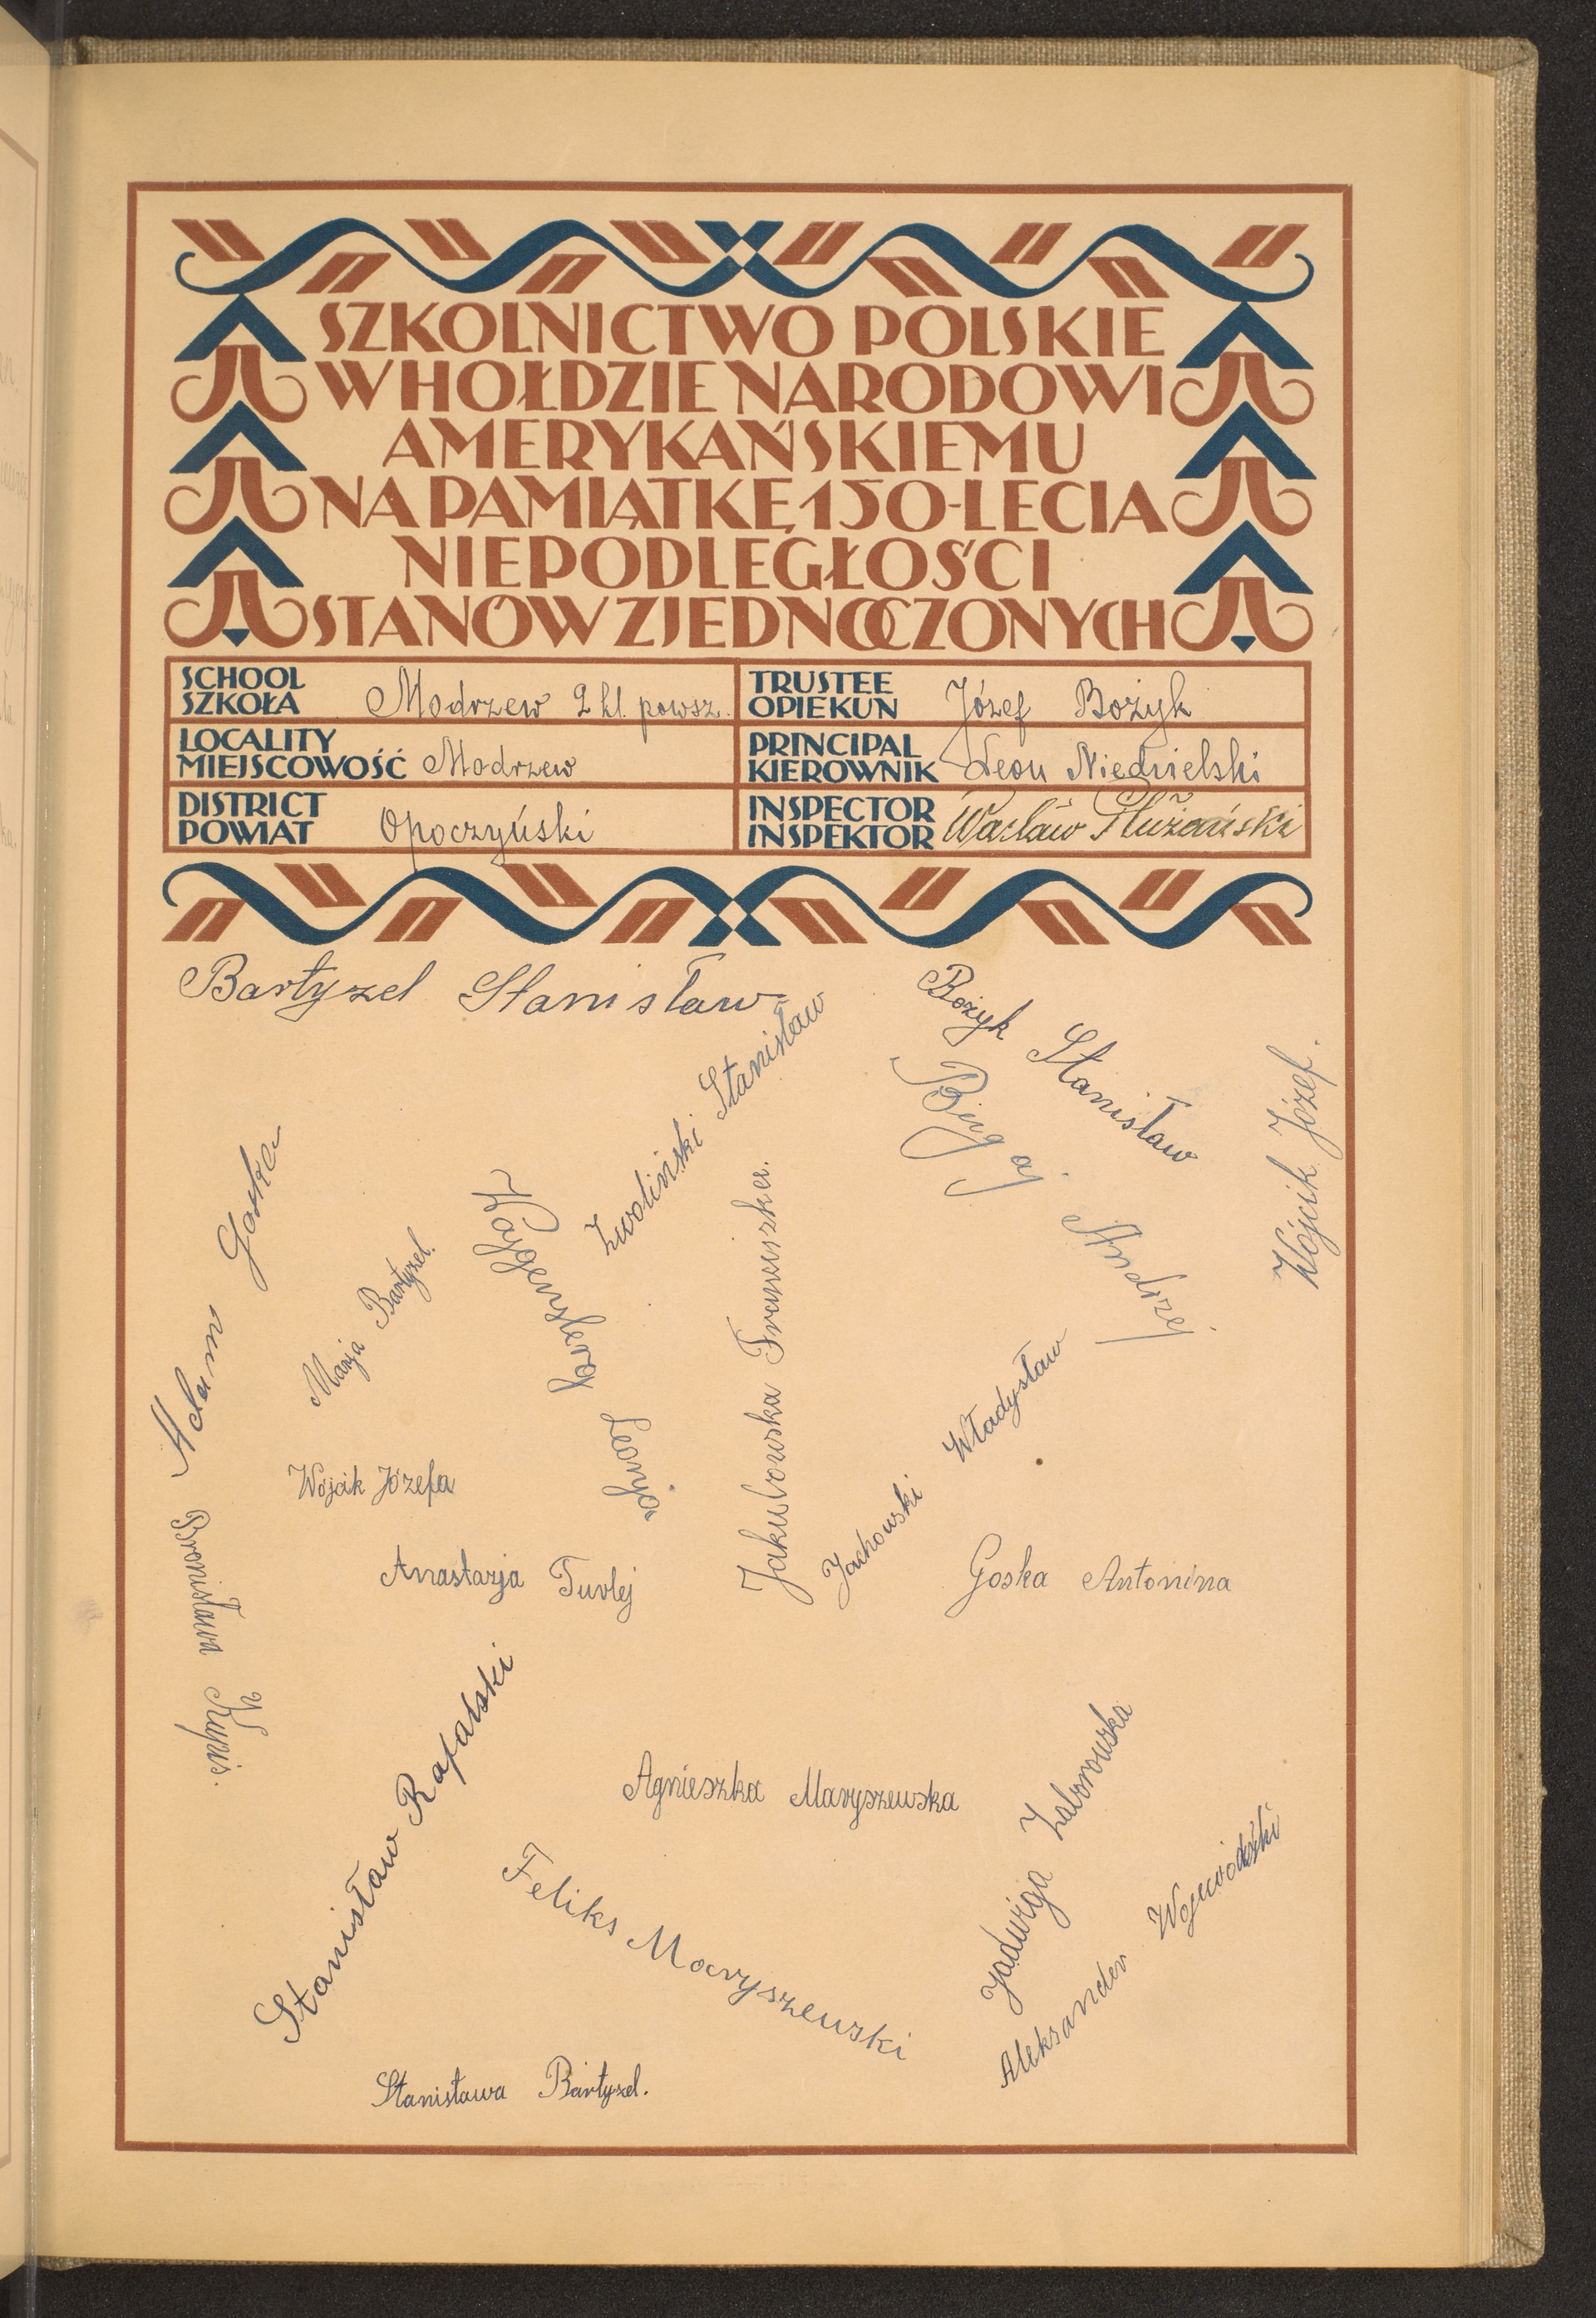 SZKOLNICTWO POLSKIE
W HOŁDZIE NARODOWI
AMERYKAŃSKIEMU
NA PAMIĄTKĘ 150-LECIA
NIEPODLEGŁOŚCI
STANÓW ZJEDNOCZONYCH
SCHOOL
SZKOŁA Modrzew 2 kl. powsz.
TRUSTEE
OPIEKUN Józef Bożyk
LOCALITY
MIEJSCOWOŚĆ Modrzew
PRINCIPAL
KIEROWNIK Leon Niedzielski
DISTRICT
POWIAT Opoczyński
INSPECTOR
INSPEKTOR Wacław Płużański
Bartyzel Stanisław
Bożyk Stanisław
Zwoliński Stanisław
Bigaj Andrzej
Wójcik Józef.
Adam Goska
Marja Bartyzel.
Leonja
Jakubowska Franciszka.
Jachowski Władysław
Wójcik Józefa
Anastazja Turlej
Goska Antonina
Bronisława Kupis.
Stanisław Rafalski
Agnieszka Maryszewska
Jadwiga Zaborowska
Feliks Maryszewski
Aleksander Wojewódzki
Stanisława Bartyzel.